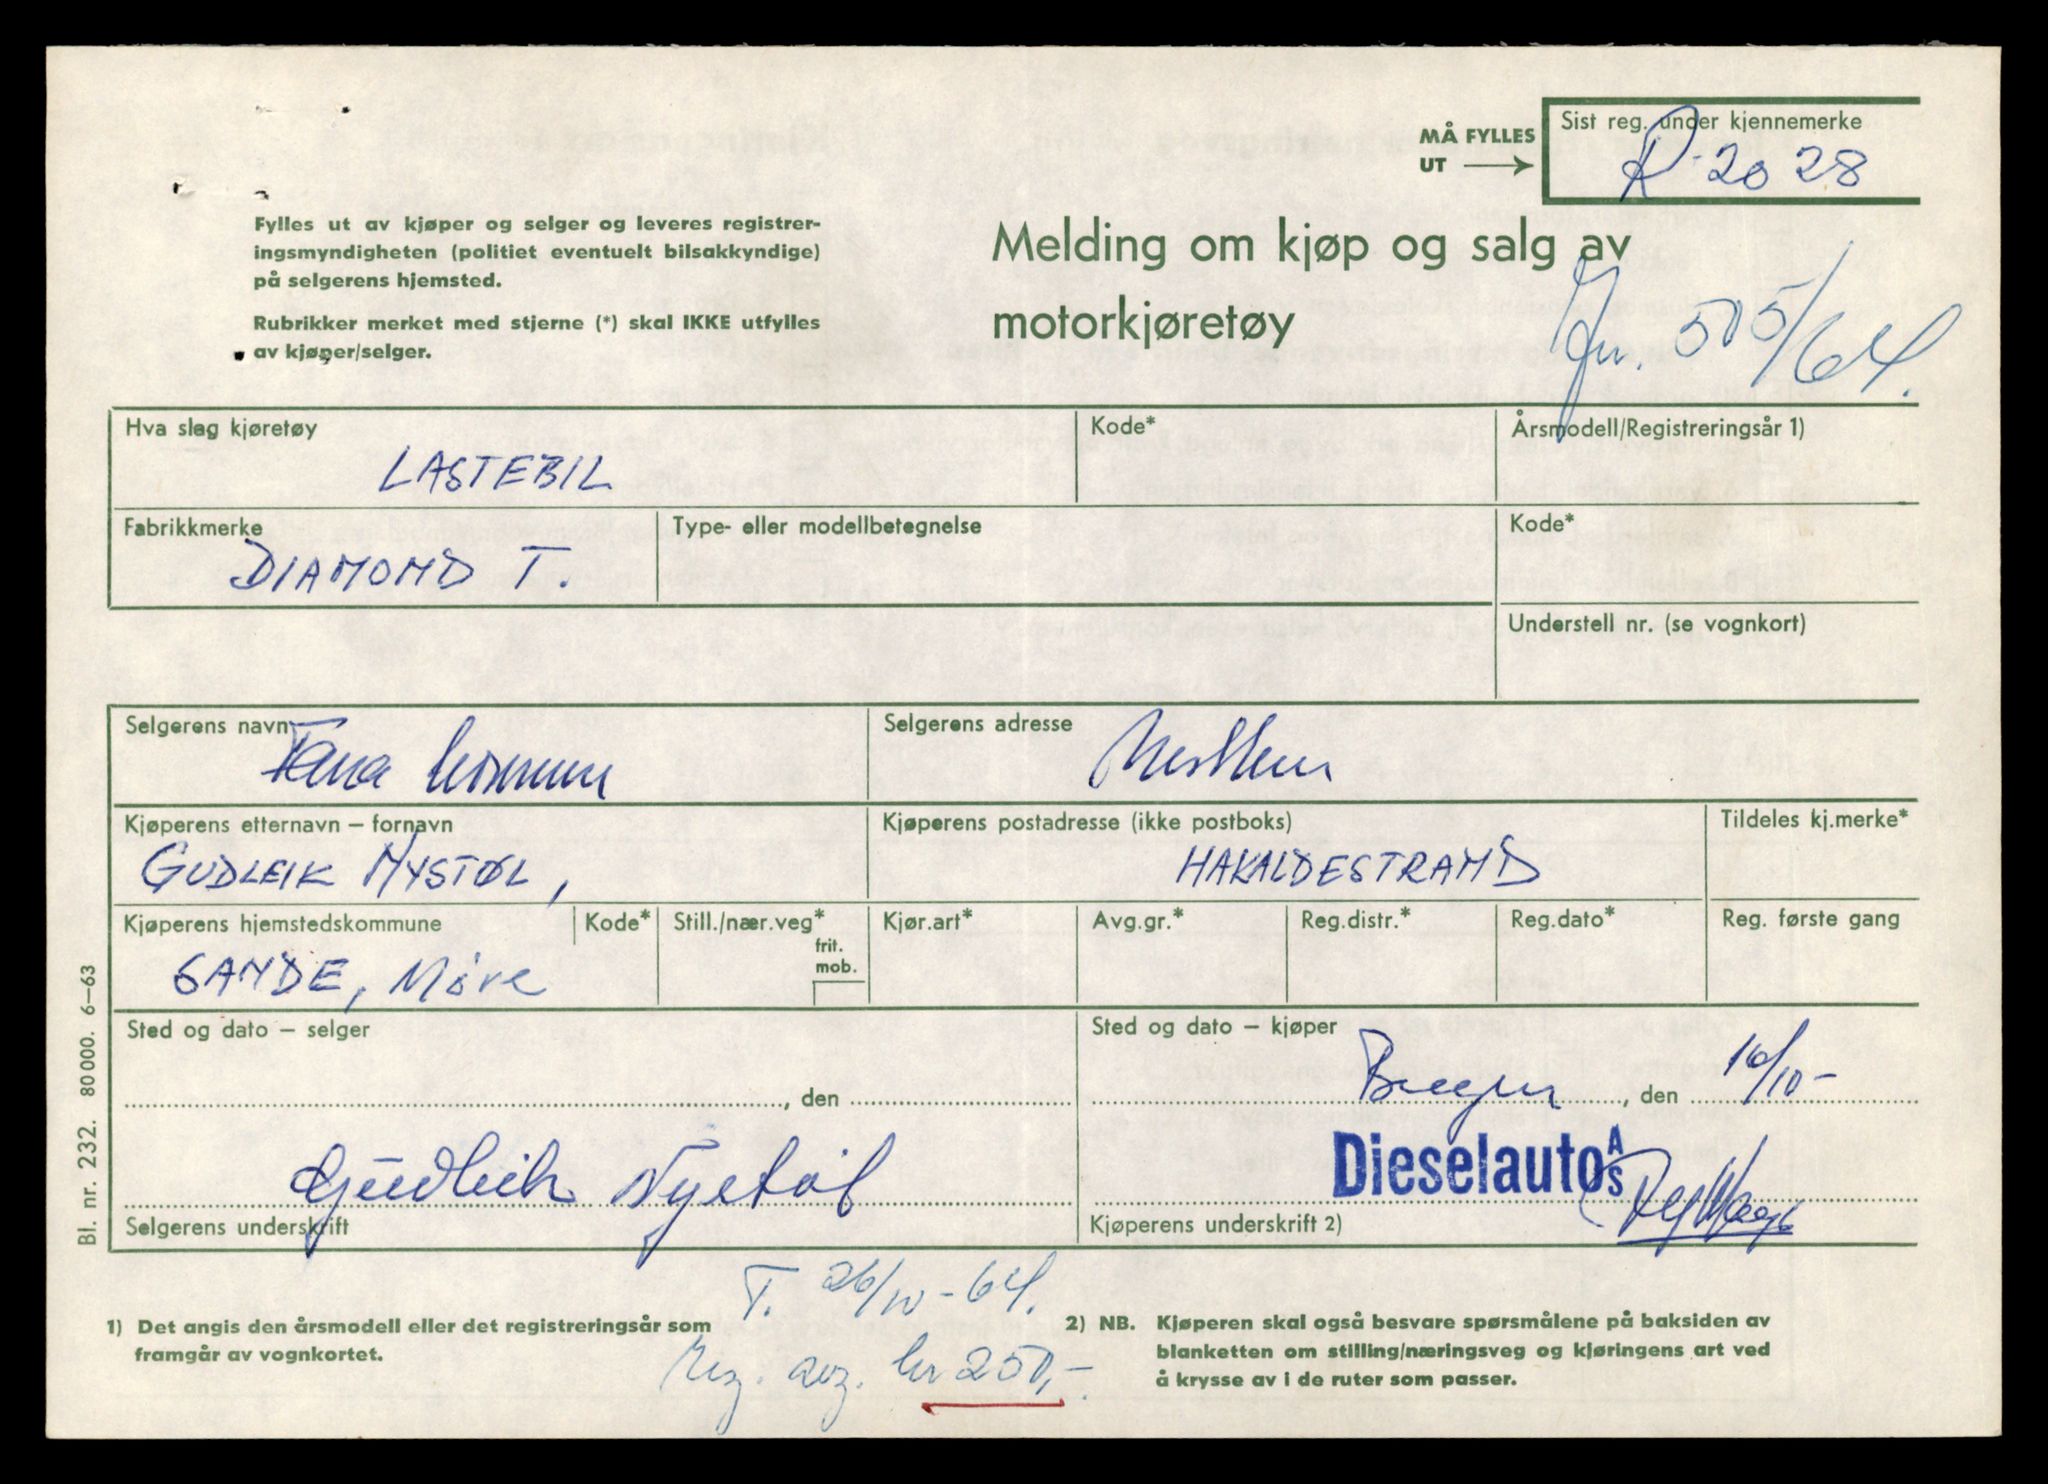 MÅ FYLLES UT
Sist reg. under kjennemerke
R-2028
Fylles ut av kjøper og selger og leveres registrer-
ingsmyndigheten (politiet eventuelt bilsakkyndige)
på selgerens hjemsted.
Rubrikker merket med stjerne (*) skal IKKE utfylles
av kjøper/selger.
Melding om kjøp og salg av
motorkjøretøy
Jnr. 505/64.
Hva slag kjøretøy
LASTEBIL
Kode*
Årsmodell/Registreringsår 1)
Fabrikkmerke
DIAMOND T.
Type- eller modellbetegnelse
Kode*
Understell nr. (se vognkort)
Selgerens navn
Fana kommune
Selgerens adresse
Nesttun
Kjøperens etternavn – fornavn
GUDLEIK NYSTØL,
Kjøperens postadresse (ikke postboks)
HAKALDESTRAND
Tildeles kj.merke*
Kjøperens hjemstedskommune
SANDE, Møre
Kode*
Still./nær.veg*
frit.
mob.
Kjør.art*
Avg.gr.*
Reg.distr.*
Reg.dato*
Reg. første gang
Sted og dato – selger
, den
Sted og dato – kjøper
Bergen, den 16/10-
Gudleik Nystøl
Selgerens underskrift
Dieselauto A/S
Kjøperens underskrift 2)
T. 26/10-64.
1) Det angis den årsmodell eller det registreringsår som
framgår av vognkortet.
Reg. avg. kr 250,-.
2) NB. Kjøperen skal også besvare spørsmålene på baksiden av
blanketten om stilling/næringsveg og kjøringens art ved
å krysse av i de ruter som passer.
Bl. nr. 232. 80000. 6–63